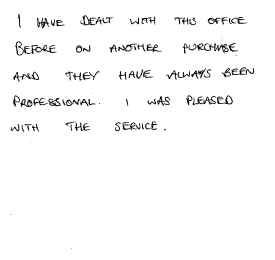 I HAVE DEALT WITH THIS OFFICE
BEFORE ON ANOTHER PURCHASE
AND THEY HAVE ALWAYS BEEN
PROFESSIONAL. I WAS PLEASED
WITH THE SERVICE.